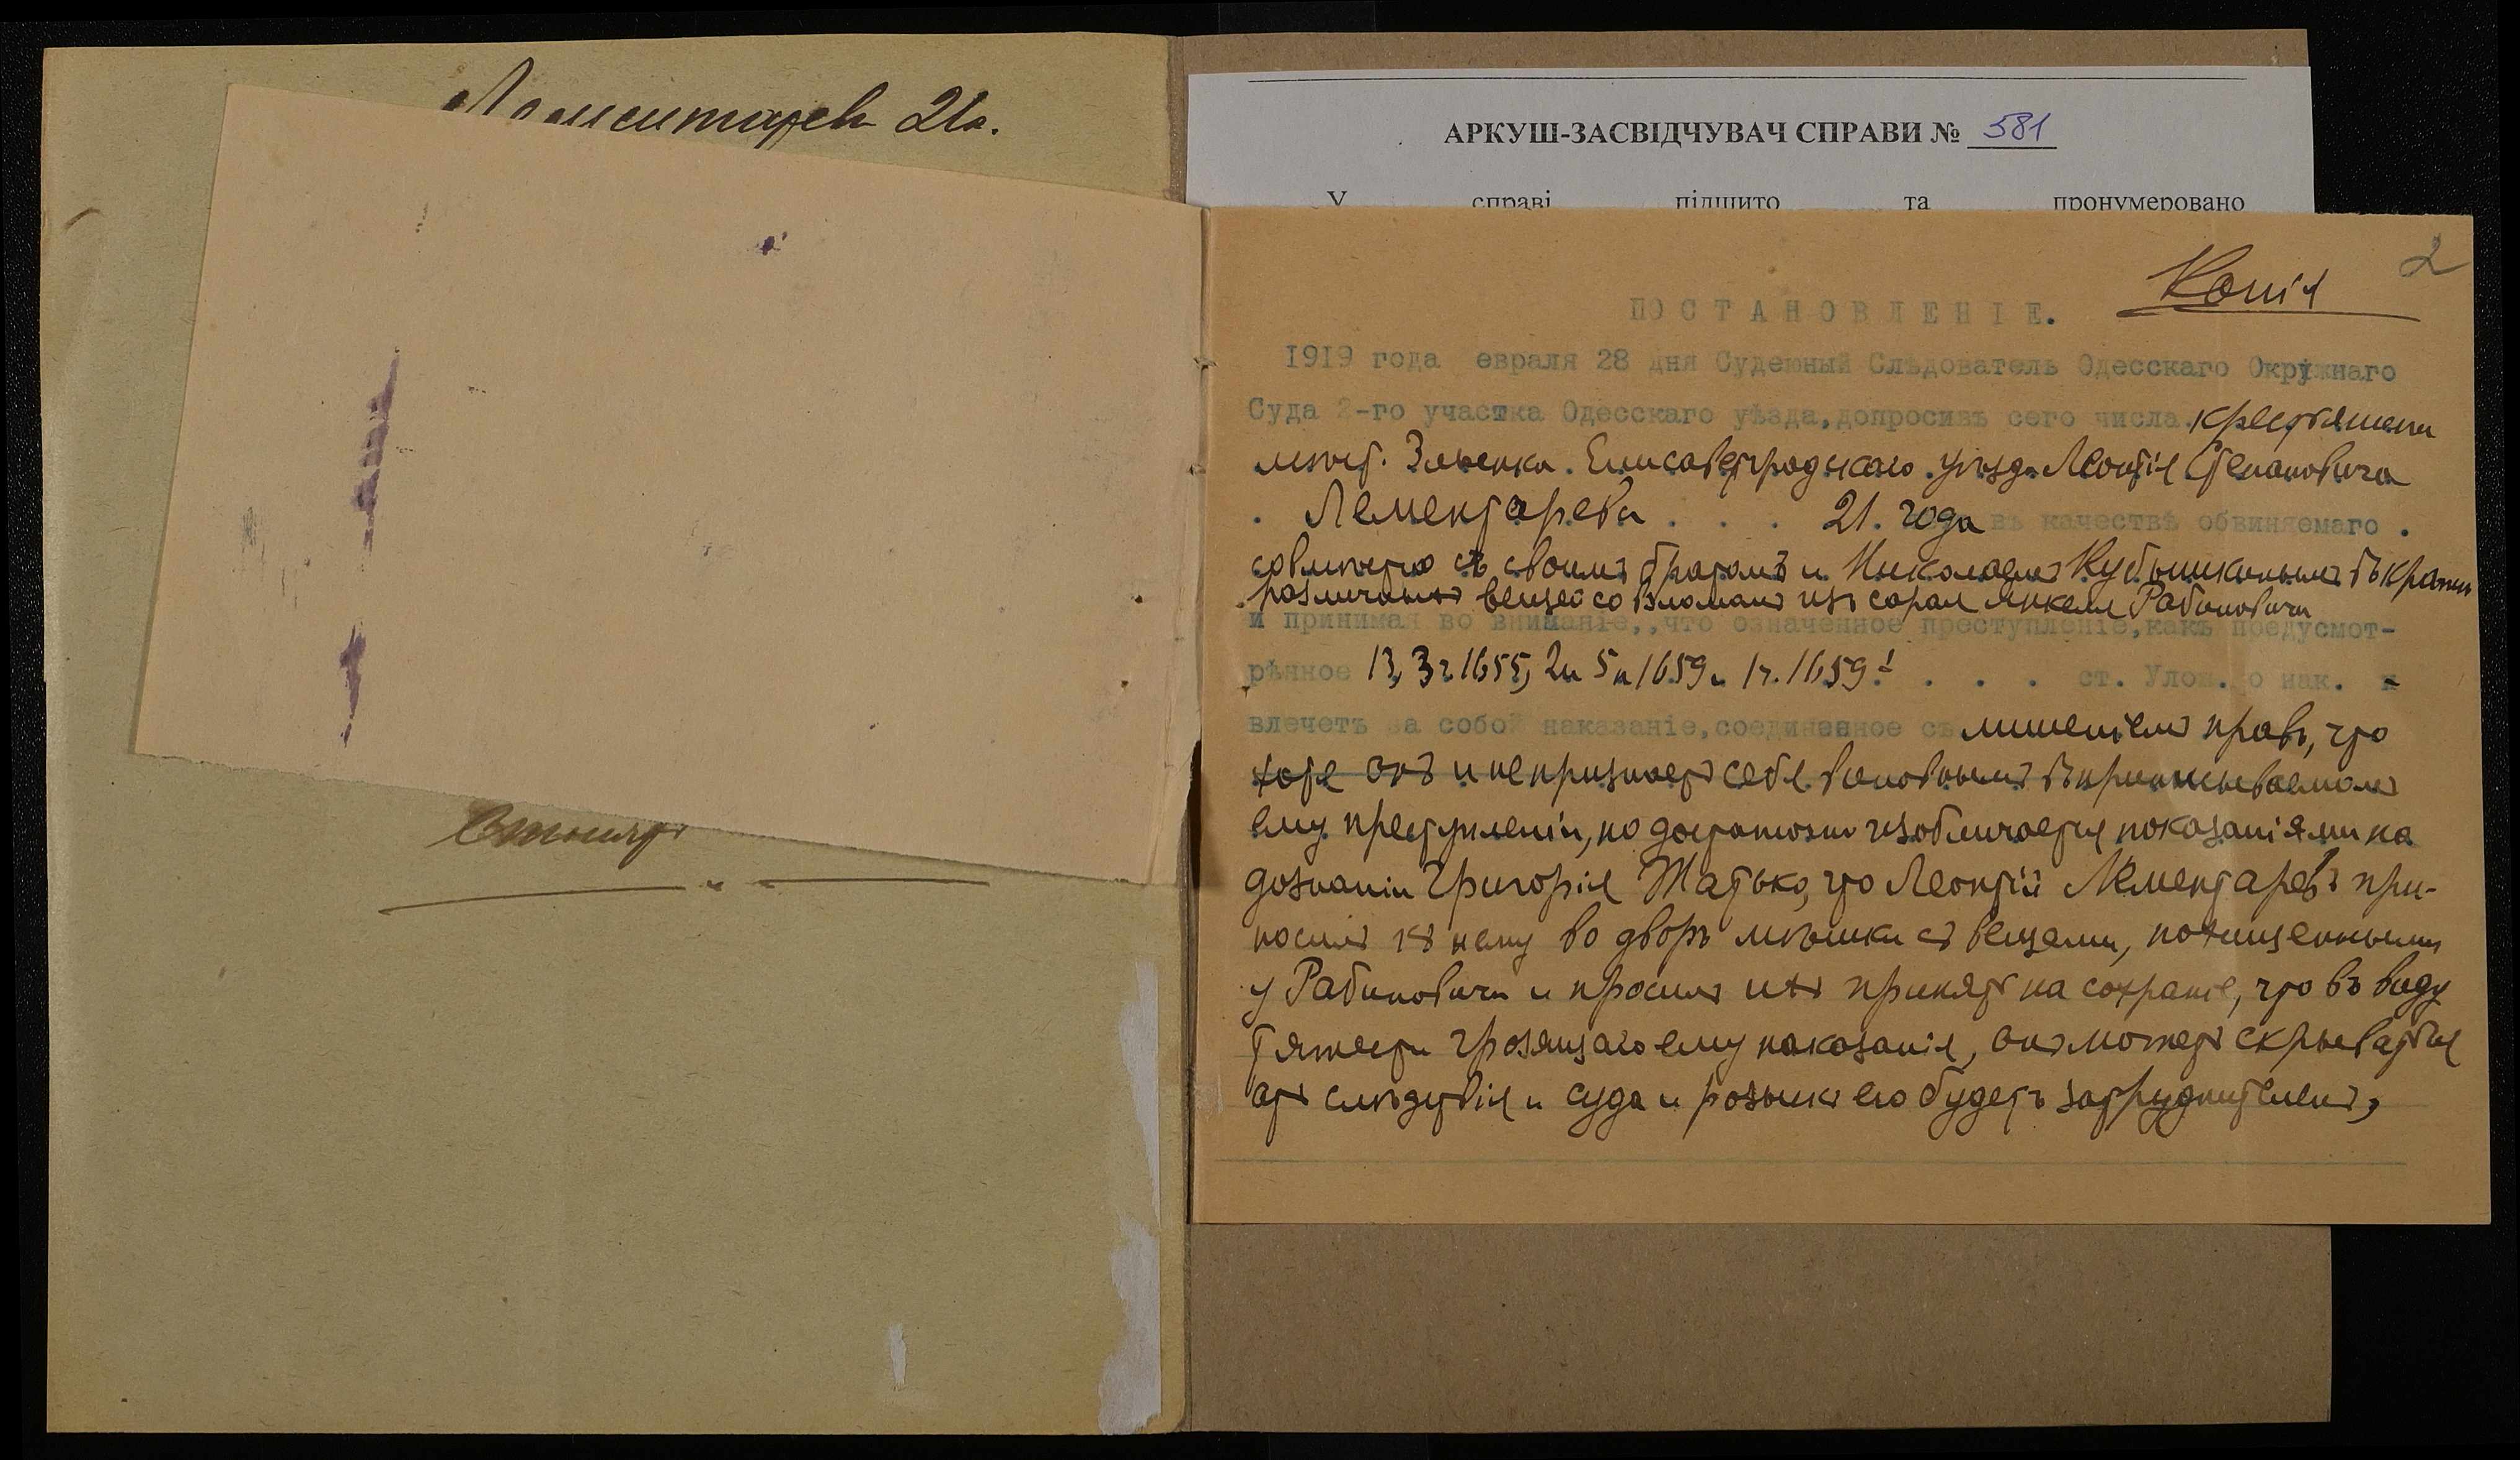 Ламентарев 21г.
АРКУШ-ЗАСВІДЧУВАЧ СПРАВИ № 581
У справі підшито та пронумеровано
2
Копія
ПОСТАНОВЛЕНІЕ.
1919 года евраля 28 дня Судебный Слѣдователь Одесскаго Окружнаго
Суда 2-го участка Одесскаго уѣзда,допросивъ сего числа крестьянина
мѣст. Злынки Елисаветградскаго уѣзда Леонтія Степановича
Лементарева . . . 21. года въ качествѣ обвиняемаго .
совмѣстно съ своимъ братомъ и Николаемъ Кубышкинымъ въ кражѣ
различныхъ вещей со взломомъ изъ сарая Янкеля Рабиновича
и принимая во вниманіе,,что означенное преступленіе,какъ предусмот-
рѣнное 13, 3 ч. 1655, 2 и 5 п 1659 и 1 ч. 1659¹ . . . ст. Улож. о нак. и
влечетъ за собой наказаніе,соединенное съ лишеніемъ правъ, что
хотя онъ и не признаетъ себя виновнымъ въ приписываемомъ
ему преступленіи, но достаточно изобличается показаніями на
дознаніи Григорія Татько, что Леонтій Лементаревъ при-
носилъ къ нему во дворъ мѣшки съ вещами, похищенными
у Рабиновича и просилъ ихъ принять на сохраніе, что въ виду
тяжести грозящаго ему наказанія, онъ можетъ скрываться
отъ слѣдствія и суда и розыскъ его будетъ затруднителенъ,